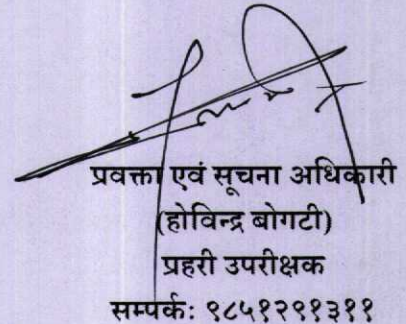 प्रवक्ता एवं सूचना अधिकारी
(होविन्द्र बोगटी)
प्रहरी उपरीक्षक
सम्पर्कः ९८५१२९१३११